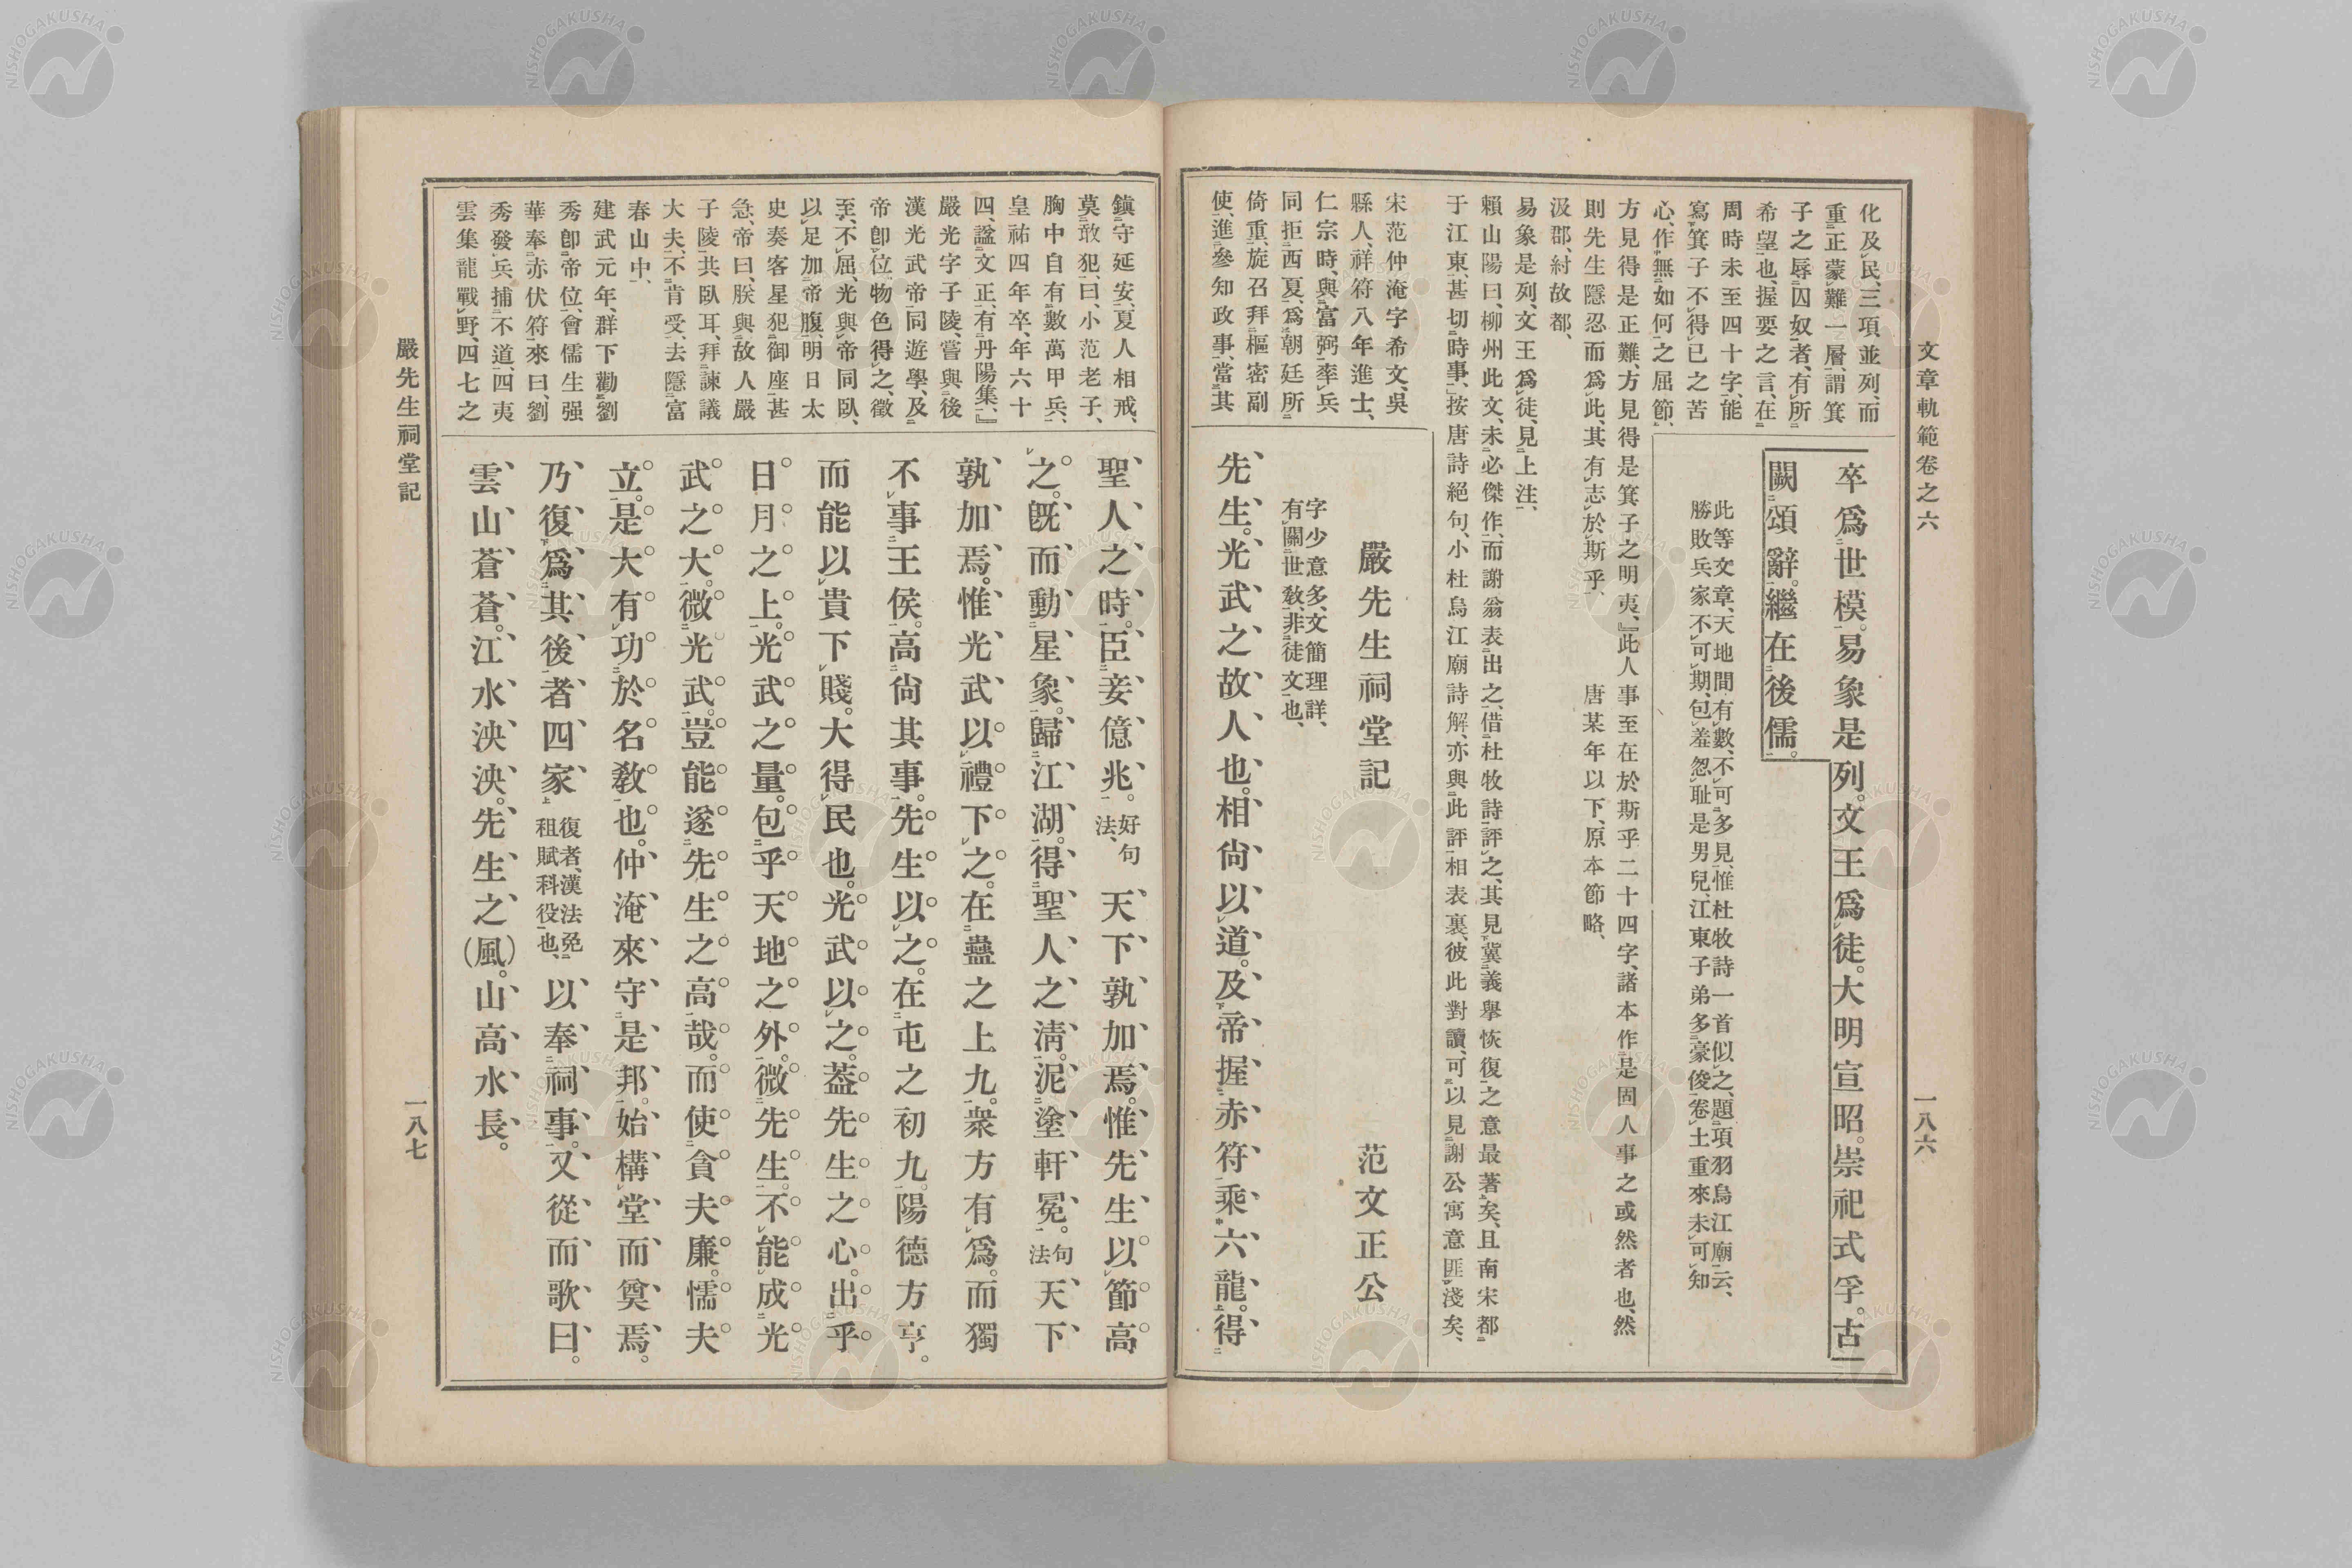 文章軌範卷之六
一八六
化及民、三項並列、而
重正蒙難一層、謂箕
子之辱囚奴者、有所
希望也、握要之言、在
周時未至四十字、能
寫箕子不得已之苦
心、作無如何之屈節、
方見得是正難、方見得是箕子之明夷、』此人事至在於斯乎二十四字、諸本作是固人事之或然者也、然
則先生隱忍而爲此、其有志於斯乎、 唐某年以下、原本節略、
汲郡、紂故都、
易象是列、文王爲徒、見上注、
賴山陽曰、柳州此文、未必傑作、而謝翁表出之、借杜牧詩評之、其見冀義舉恢復之意最著矣、且南宋都
于江東、甚切時事、』按唐詩絕句、小杜烏江廟詩解、亦與此評相表裏、彼此對讀、可以見謝公寓意匪淺矣、
宋范仲淹字希文、吳
縣人、祥符八年進士、
仁宗時、與富弼率兵
同拒西夏、爲朝廷所
倚重、旋召拜樞密副
使、進參知政事、當其
卒爲世模。易象是列。文王爲徒。大明宣昭。崇祀式孚。古
闕頌辭。繼在後儒。
此等文章、天地間有數、不可多見、惟杜牧詩一首似之、題項羽烏江廟云、
勝敗兵家不可期、包羞忍恥是男兒、江東子弟多豪俊、卷土重來未可知
嚴先生祠堂記
范文正公
字少意多、文簡理詳、
有關世敎、非徒文也、
先生。光武之故人也。相尙以道。及帝握赤符。乘六龍。得
鎭守延安、夏人相戒、
莫敢犯、曰、小范老子、
胸中自有數萬甲兵、
皇祐四年卒、年六十
四、諡文正、有丹陽集、』
嚴光字子陵、嘗與後
漢光武帝同遊學、及
帝卽位、物色得之、徵
至、不屈、光與帝同臥、
以足加帝腹、明日太
史奏客星犯御座甚
急、帝曰、朕與故人嚴
子陵共臥耳、拜諫議
大夫、不肯受、去隱富
春山中、
建武元年、群下勸劉
秀卽帝位、會儒生强
華奉赤伏符來曰、劉
秀發兵、捕不道、四夷
雲集龍戰野、四七之
聖人之時。臣妾億兆。好句法、天下孰加焉。惟先生以節高
之。旣而動星象。歸江湖。得聖人之淸。泥塗軒冕。句法天下
孰加焉。惟光武以禮下之。在蠱之上九。衆方有爲。而獨
不事王侯。高尙其事。先生以之。在屯之初九。陽德方亨。
而能以貴下賤。大得民也。光武以之。葢先生之心。出乎
日月之上。光武之量。包乎天地之外。微先生。不能成光
武之大。微光武。豈能遂先生之高哉。而使貪夫廉。懦夫
立。是大有功於名敎也。仲淹來守是邦。始構堂而奠焉。
乃復爲其後者四家復者、漢法免租賦科役也、以奉祠事。又從而歌曰。
雲山蒼蒼。江水泱泱。先生之(風)。山高水長。
嚴先生祠堂記
一八七
NISHOGAKUSHA